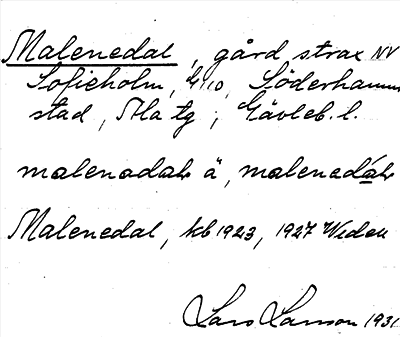 Malenedal, gård strax NV
Sofieholm, G 10, Söderhamns
stad, Ala tg, Gävleb. l.
malenadal ä, malenedal
Malenedal, kb 1923, 1927 Widén
Lars Larsson 1931